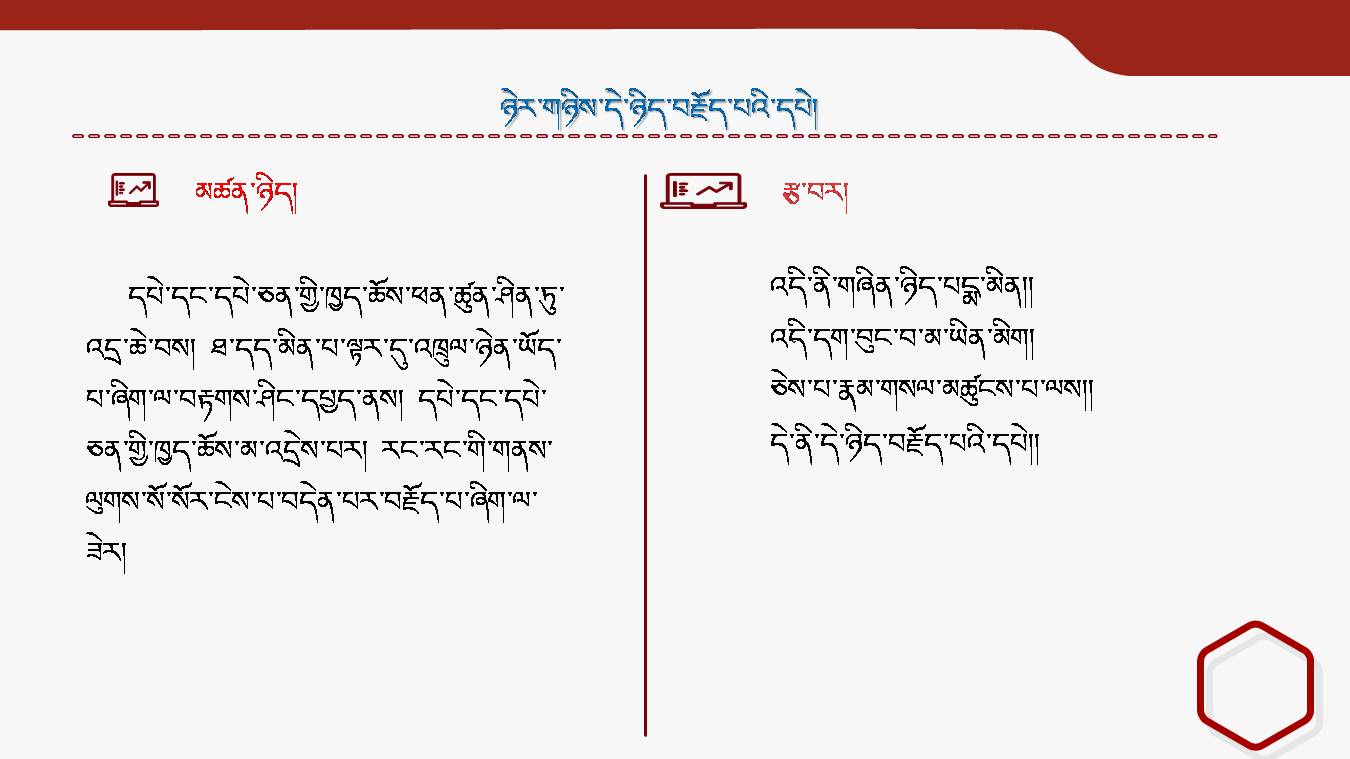 ཉེར་གཉིས་དེ་ཉིད་བརྗོད་པའི་དཔེ།
མཚན་ཉིད།
དཔེ་དང་དཔེ་ཅན་གྱི་ཁྱད་ཆོས་ཕན་ཚུན་ཤིན་ཏུ་
འདྲ་ཆེ་བས། ཐ་དད་མིན་པ་ལྟར་དུ་འཁྲུལ་ཉེན་ཡོད་
པ་ཞིག་ལ་བརྟགས་ཤིང་དཔྱད་ནས། དཔེ་དང་དཔེ་
ཅན་གྱི་ཁྱད་ཆོས་མ་འདྲེས་པར། རང་རང་གི་གནས་
ལུགས་སོ་སོར་ངེས་པ་བདེན་པར་བརྗོད་པ་ཞིག་ལ་
ཟེར།
རྩ་བར།
འདི་ནི་གཞིན་ཉིད་པདྨ་མིན།།
འདི་དག་བུང་བ་མ་ཡིན་མིག།
ཅེས་པ་རྣམ་གསལ་མཚུངས་པ་ལས།།
དེ་ནི་དེ་ཉིད་བརྗོད་པའི་དཔེ།།